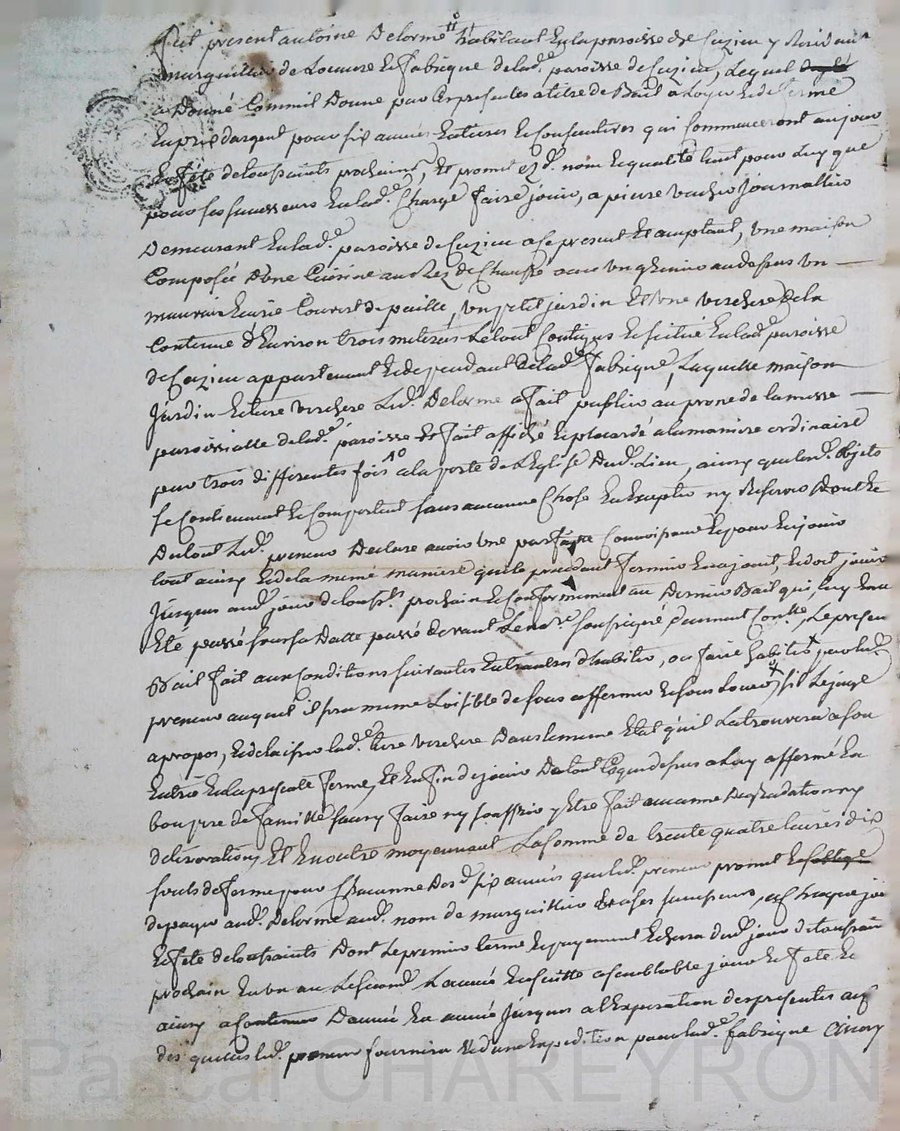 fut present antoine Delorme habitant En la paroisse de Cuzieu y Residant
marguillier de Loeuvre Et fabrique de lad.e paroisse de Cuzieu, Lequel
a Donné Comme il Donne par Ces presentes a titre de Bail a Loyer Et de ferme
En prix dargent pour six années Entieres Et Consecutives qui Commenceront au jour
Et fete de toussaints prochain, Et promet esd. nom Et qualité tant pour Luy que
pour ses successeurs En lad.e Charge faire jouir, a pierre vacher journallier
Demeurant En lad.e paroisse de Cuzieu a Ce present Et acceptant, Une maison
Composée D'une Cuisine au Rez de Chaussé avec Un grenier au dessus Un
mauvais Ecurie Couvert de paille, Un petit jardin Et Une verchere De la
Contenue d'Environ trois metérés Le tout Contigus Et scitué En lad.e paroisse
de Cuzieu appartenant Et dependant De lad.e fabrique, Laquelle maison
jardin Et terre verchere Led. Delorme a fait publier au prone de la messe
paroissialle de lad.e paroisse Et fait affiché Et placardé a la maniere ordinaire
par trois differentes fois a la porte de L'Eglise Dud. Lieu, ainsy que lesd. objets
se Contiennent Et Comportent sans aucune Chose En Excepter ny Reserver Dont Et
Du tout Led. preneur Declare avoir Une parfaite Connoissance Et pour En jouir
tout ainsy Et de la même maniere que le precedant fermier En a jouit, Et doit jouir
jusques aud. jour de touss.ts prochain Et Conformement au Dernier Bail qui luy En a
Eté passé sous sa Datte passé devant Le no.re soussigné Duement Con.llé, Le present
Bail fait aux Conditions suivantes D'habiter, ou faire habiter par led.
preneur auquel il sera meme Loisible de sous affermer Et sous Louer, s'il Le juge
apropos, Et de laisser lad.e terre verchere Dans le meme Etat qu'il La trouvera a son
Entrée En la presente ferme, Et Enfin de jouir De tout Ce que dessus a Luy affermé En
bon pere de famille sans y faire ny souffrir y Etre fait aucune Degradation ny
deterioration, Et En outre moyennant La somme de trente quatre livres dix
sols de ferme pour Chacunne Desd. six années que led. preneur promet
de payer aud. Delorme aud. nom de marguillier Et a ses successeurs, a Chaque jour
Et fete de toussaints Dont Le premier terme Et payement Echera Dud. jour de toussaint
prochain En Un an Le second L'année Ensuitte a semblable jour Et fete Et
ainsy a Continuer D'année En année jusques a l'Expiration des presentes
des quelles led. preneur fournira Et d'une Expedition pour lad.e fabrique ainsy
Pascal CHAREYRON